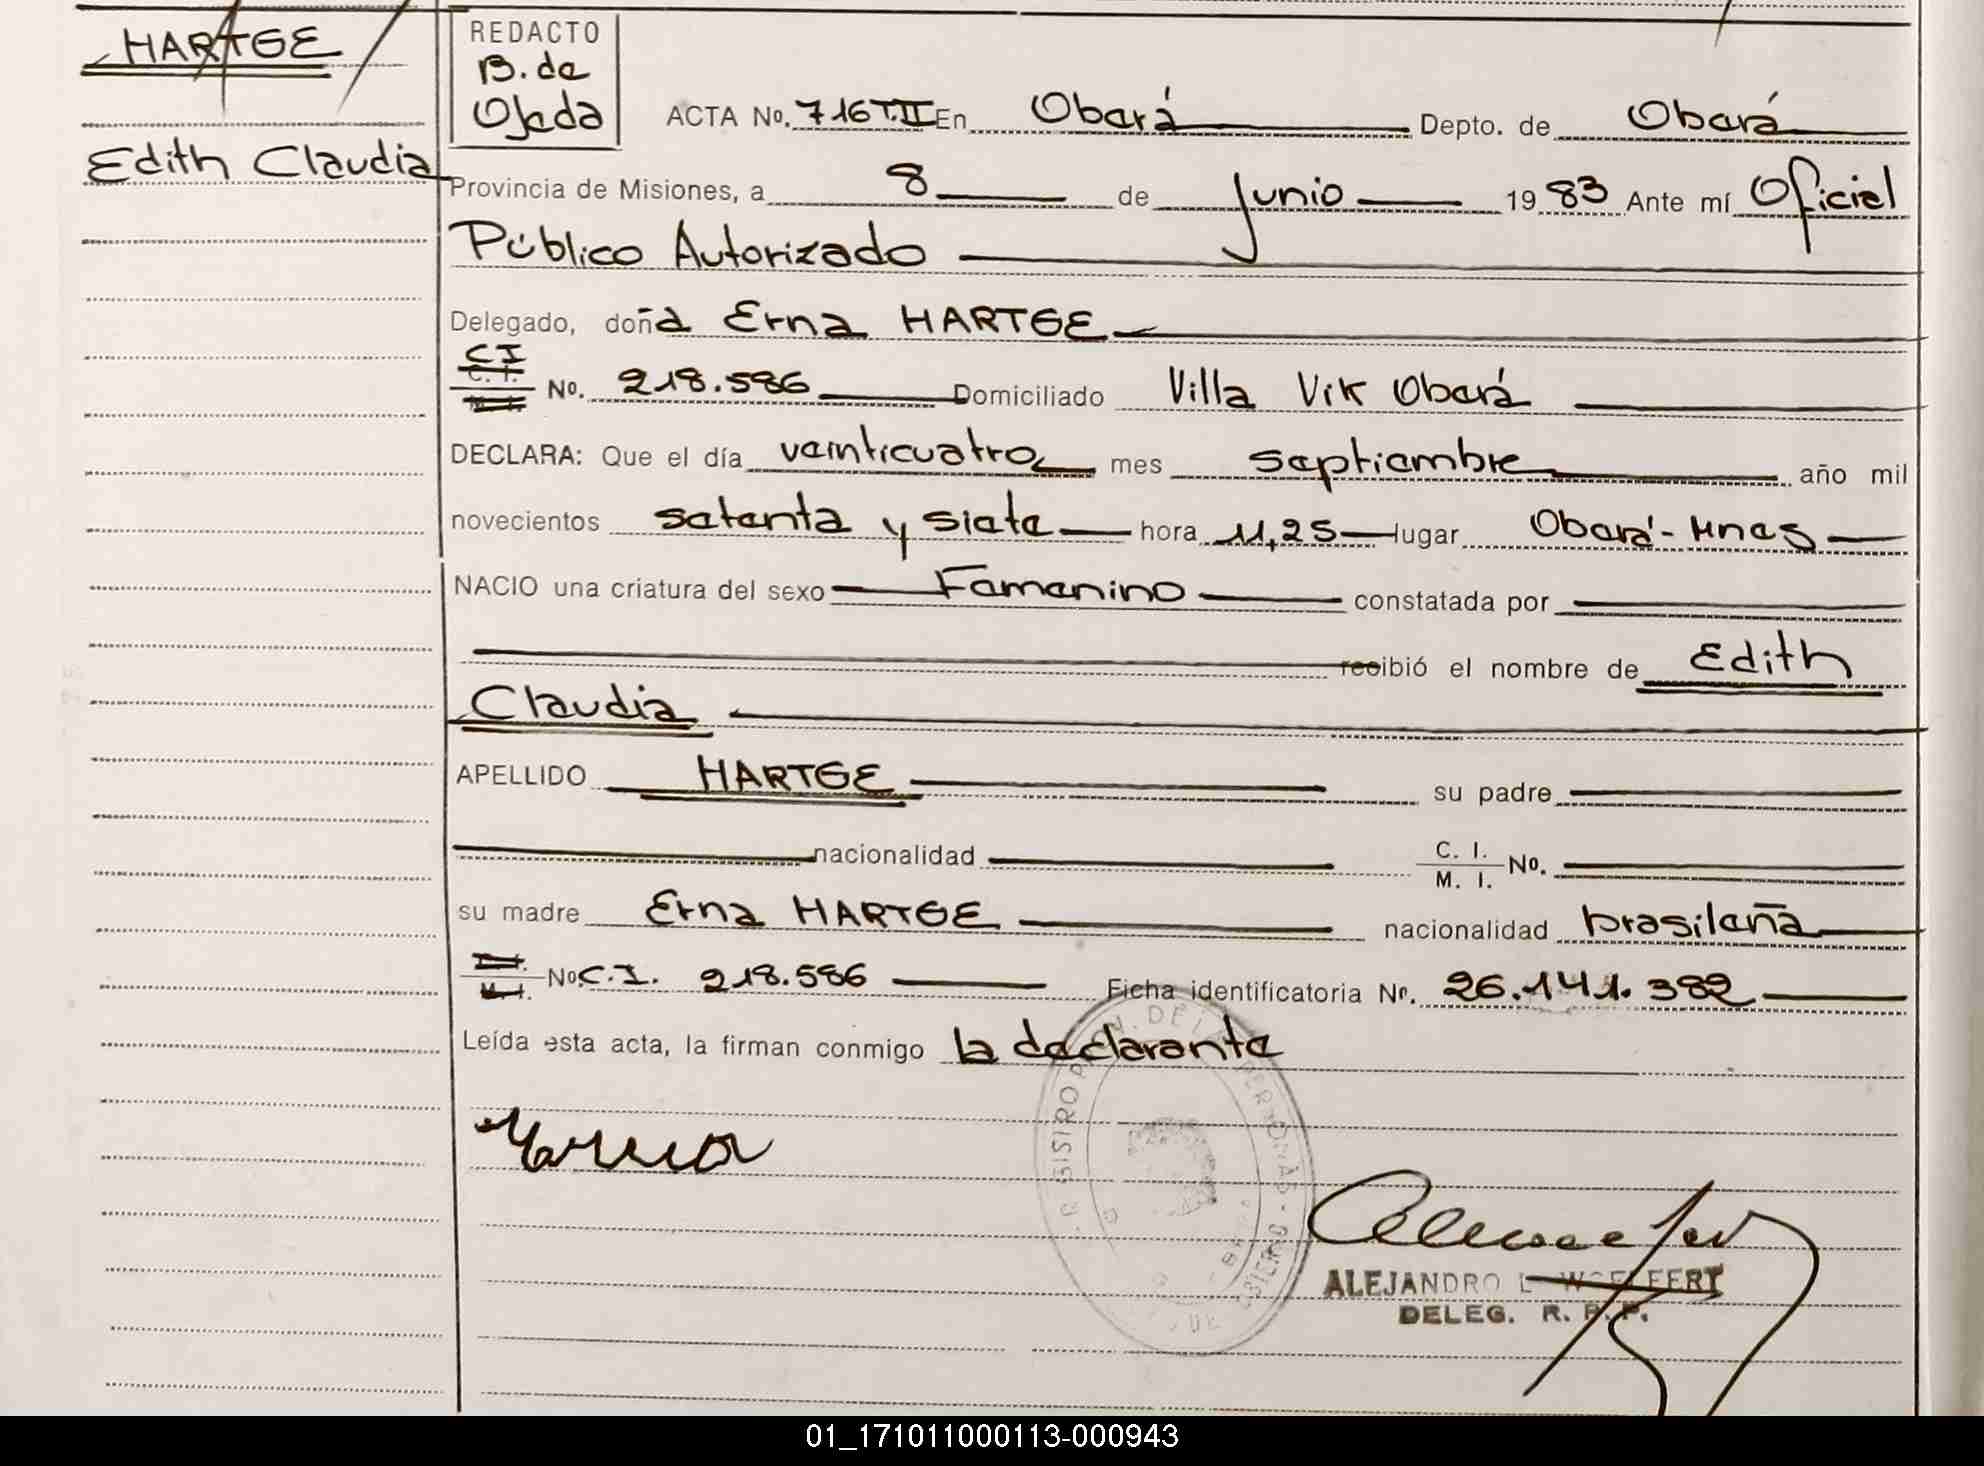 HARTGE
Edith Claudia
REDACTO
B. de
Ojeda
ACTA No. 716 T.II En Oberá Depto. de Oberá
Provincia de Misiones, a 8 de Junio 19 83 Ante mí Oficiel
Público Autorizado
Delegado, doña Erna HARTGE
CI
C. I.
No. 218.586 Domiciliado Villa Vik Oberá
DECLARA: Que el día veinticuatro mes septiembre año mil
novecientos setenta y siete hora 11,25 lugar Oberá-Mnes
NACIO una criatura del sexo Femenino constatada por
recibió el nombre de Edith
Claudia
APELLIDO HARTGE su padre
nacionalidad C. I. M. I. No.
su madre Erna HARTGE nacionalidad brasileña
M. I. No. C.I. 218.586 Ficha identificatoria No. 26.141.382
Leída esta acta, la firman conmigo la declarante
Erna
ALEJANDRO L. WOELFERT
DELEG. R. P. P.
01_171011000113-000943